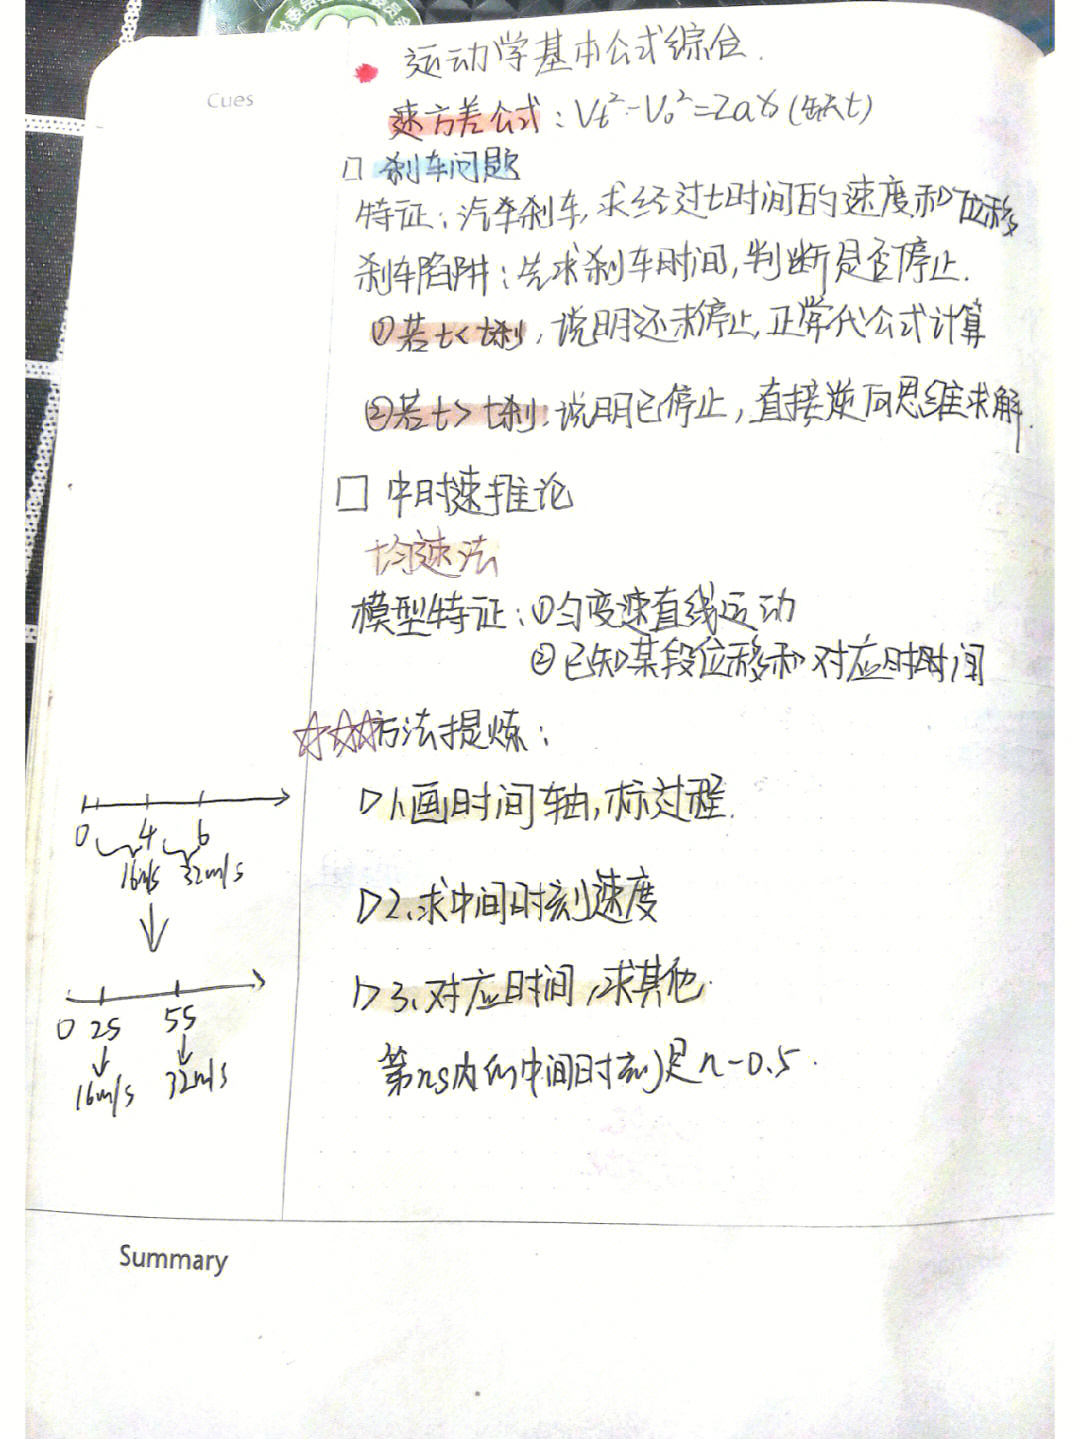 运动学基本公式综合.
Cues
速方差公式：Vt²-V₀²=2ax(缺t)
刹车问题
特征：汽车刹车,求经过t时间的速度和位移
刹车陷阱：先求刹车时间,判断是否停止.
①若t<t刹,说明还未停止,正常代公式计算
②若t>t刹,说明已停止,直接逆向思维求解.
中时速推论
均速法
模型特征：①匀变速直线运动
②已知某段位移和对应时时间
方法提炼：
1.画时间轴,标过程.
0 4 6
16m/s 32m/s
2.求中间时刻速度
3.对应时间,求其他.
0 2S 5S
第ns内的中间时刻是n-0.5.
16m/s 32m/s
Summary